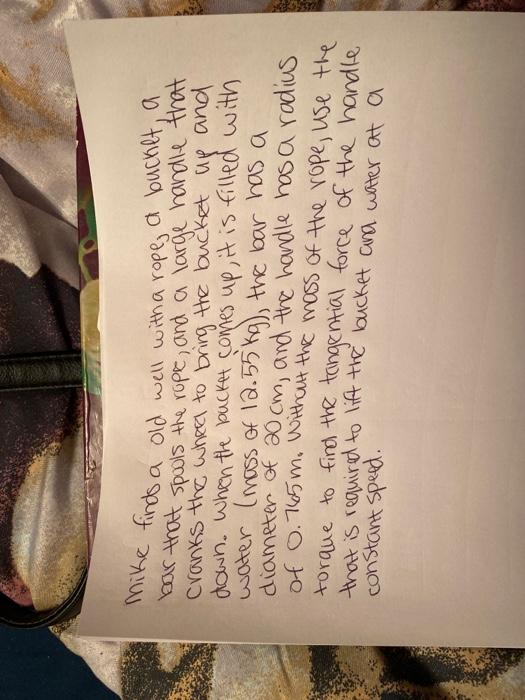 Mike finds a old well with a rope, a bucket, a
bar that spools the rope, and a large handle that
cranks the wheel to bring the bucket up and
down. When the bucket comes up, it is filled with
water (mass of 12.55 kg), the bar has a
diameter of 20 cm, and the handle has a radius
of 0.765 m. Without the mass of the rope, use the
torque to find the tangential force of the handle
that is required to lift the bucket and water at a
constant speed.